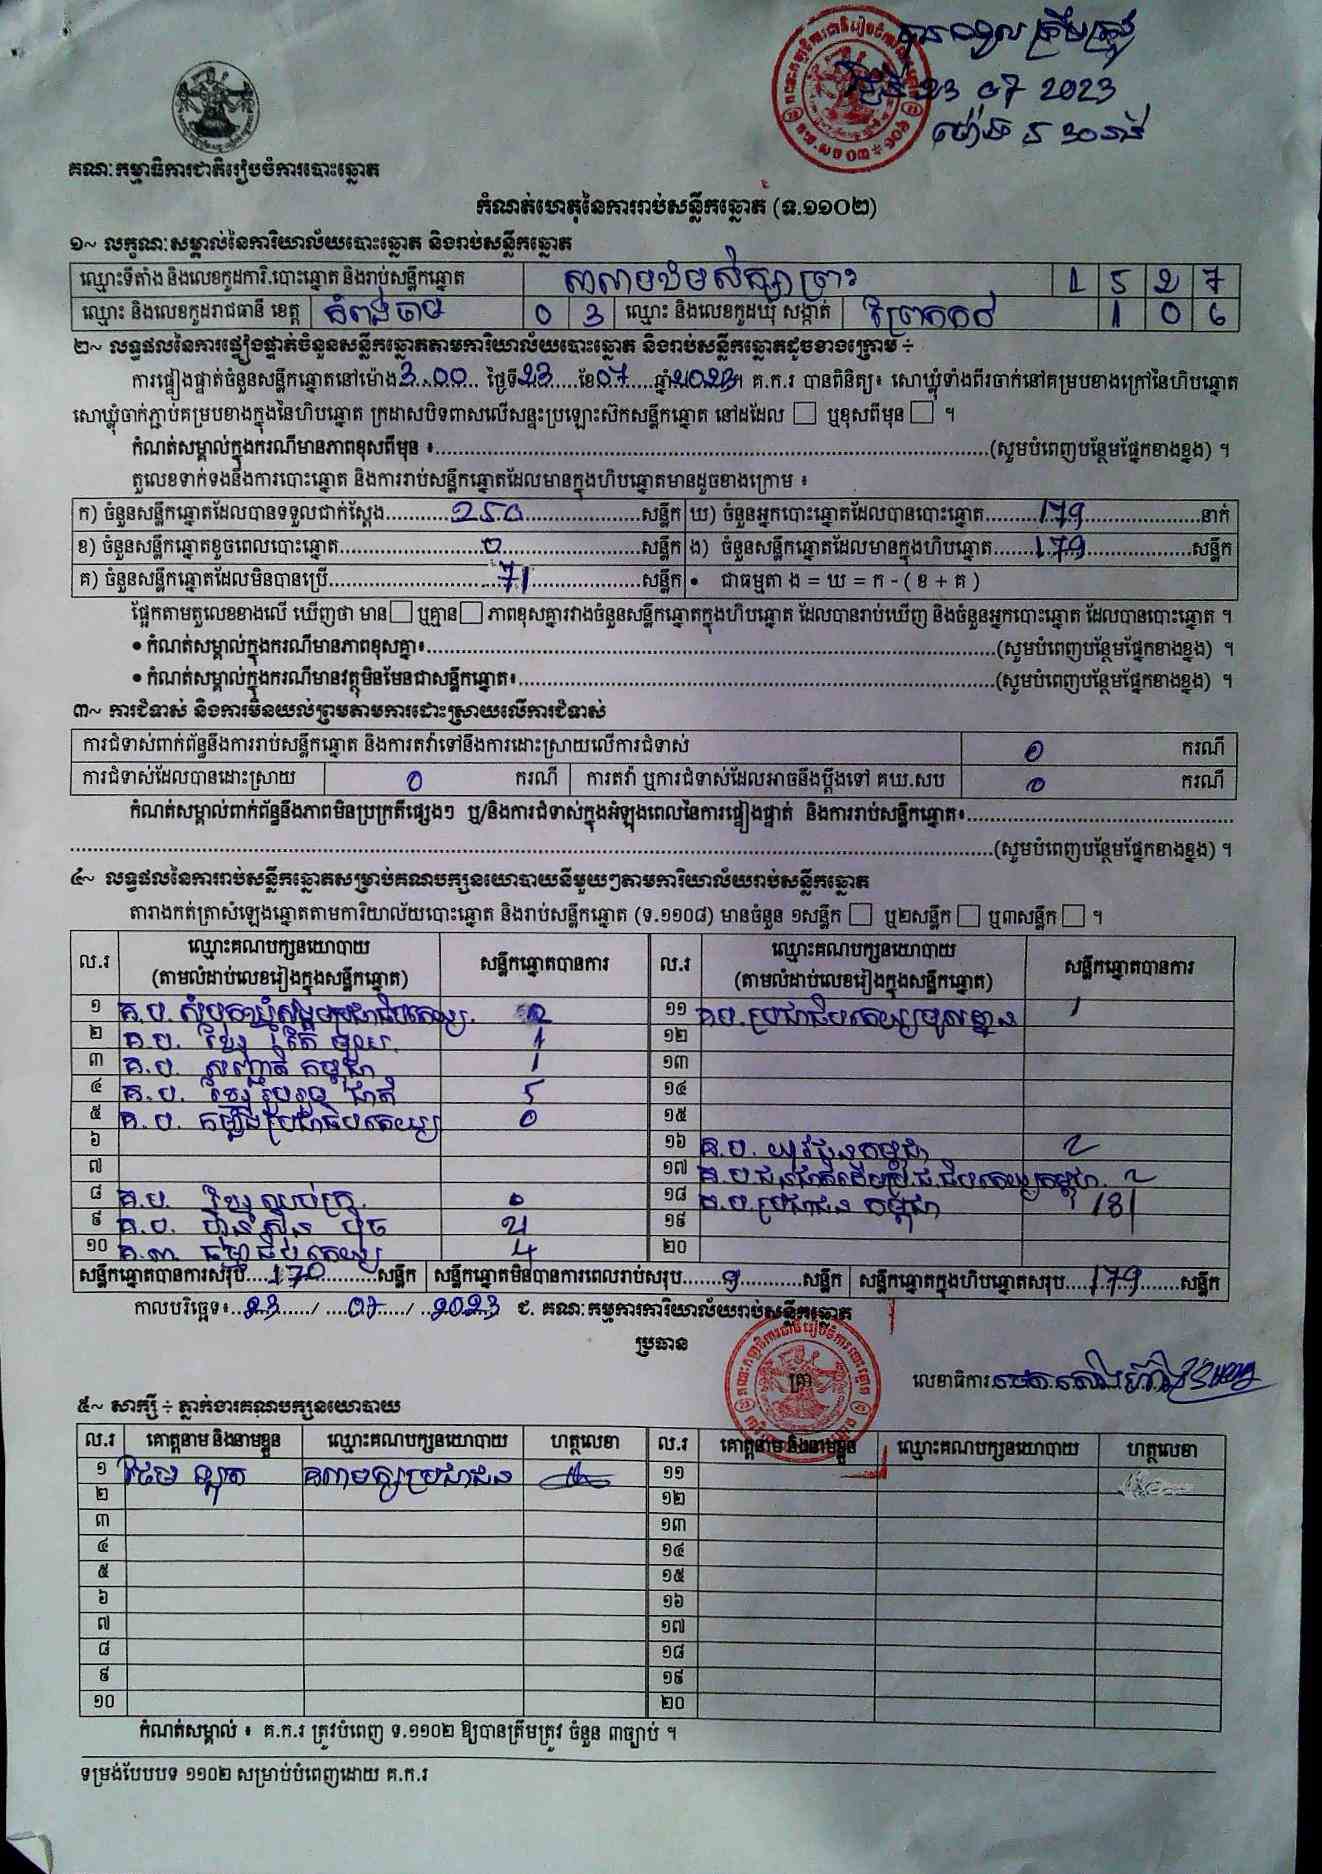 បានទទួល ត្រឹមត្រូវ
ថ្ងៃទី 23 07 2023
គណៈកម្មាធិការជាតិរៀបចំការបោះឆ្នោត
កំណត់ហេតុនៃការរាប់សន្លឹកឆ្នោត (ទ.១១០២)
១~ លក្ខណៈសម្គាល់នៃការិយាល័យបោះឆ្នោត និងរាប់សន្លឹកឆ្នោត
ឈ្មោះទីតាំង និងលេខកូដការិ.បោះឆ្នោត និងរាប់សន្លឹកឆ្នោត 1 5 2 7
ឈ្មោះ និងលេខកូដរាជធានី ខេត្ត កំពង់ចាម 0 3 ឈ្មោះ និងលេខកូដឃុំ សង្កាត់ 1 0 6
២~ លទ្ធផលនៃការផ្ទៀងផ្ទាត់ចំនួនសន្លឹកឆ្នោតតាមការិយាល័យបោះឆ្នោត និងរាប់សន្លឹកឆ្នោតដូចខាងក្រោម ÷
ការផ្ទៀងផ្ទាត់ចំនួនសន្លឹកឆ្នោតនៅម៉ោង 3.00 ថ្ងៃទី 23 ខែ 07 ឆ្នាំ 2023។ គ.ក.រ បានពិនិត្យ៖ សោឃ្លុំទាំងពីរចាក់នៅគម្របខាងក្រៅនៃហិបឆ្នោត
សោឃ្លុំចាក់ភ្ជាប់គម្របខាងក្នុងនៃហិបឆ្នោត ក្រដាសបិទពាសលើសន្ទះប្រឡោះស៊កសន្លឹកឆ្នោត នៅដដែល ☐ ឬខុសពីមុន ☐ ។
កំណត់សម្គាល់ក្នុងករណីមានភាពខុសពីមុន ៖ (សូមបំពេញបន្ថែមផ្នែកខាងខ្នង) ។
តួលេខទាក់ទងនឹងការបោះឆ្នោត និងការរាប់សន្លឹកឆ្នោតដែលមានក្នុងហិបឆ្នោតមានដូចខាងក្រោម ៖
ក) ចំនួនសន្លឹកឆ្នោតដែលបានទទួលជាក់ស្តែង 250 សន្លឹក ឃ) ចំនួនអ្នកបោះឆ្នោតដែលបានបោះឆ្នោត 179 នាក់
ខ) ចំនួនសន្លឹកឆ្នោតខូចពេលបោះឆ្នោត 0 សន្លឹក ង) ចំនួនសន្លឹកឆ្នោតដែលមានក្នុងហិបឆ្នោត 179 សន្លឹក
គ) ចំនួនសន្លឹកឆ្នោតដែលមិនបានប្រើ 71 សន្លឹក • ជាធម្មតា ង = ឃ = ក - ( ខ + គ )
ផ្អែកតាមតួលេខខាងលើ ឃើញថា មាន ☐ ឬគ្មាន ☐ ភាពខុសគ្នារវាងចំនួនសន្លឹកឆ្នោតក្នុងហិបឆ្នោត ដែលបានរាប់ឃើញ និងចំនួនអ្នកបោះឆ្នោត ដែលបានបោះឆ្នោត ។
• កំណត់សម្គាល់ក្នុងករណីមានភាពខុសគ្នា៖ (សូមបំពេញបន្ថែមផ្នែកខាងខ្នង) ។
• កំណត់សម្គាល់ក្នុងករណីមានវត្ថុមិនមែនជាសន្លឹកឆ្នោត៖ (សូមបំពេញបន្ថែមផ្នែកខាងខ្នង) ។
៣~ ការជំទាស់ និងការមិនយល់ព្រមតាមការដោះស្រាយលើការជំទាស់
ការជំទាស់ពាក់ព័ន្ធនឹងការរាប់សន្លឹកឆ្នោត និងការតវ៉ាទៅនឹងការដោះស្រាយលើការជំទាស់ 0 ករណី
ការជំទាស់ដែលបានដោះស្រាយ 0 ករណី ការតវ៉ា ឬការជំទាស់ដែលអាចនឹងប្តឹងទៅ គឃ.សប 0 ករណី
កំណត់សម្គាល់ពាក់ព័ន្ធនឹងភាពមិនប្រក្រតីផ្សេងៗ ឬ/និងការជំទាស់ក្នុងអំឡុងពេលនៃការផ្ទៀងផ្ទាត់ និងការរាប់សន្លឹកឆ្នោត៖
(សូមបំពេញបន្ថែមផ្នែកខាងខ្នង) ។
៤~ លទ្ធផលនៃការរាប់សន្លឹកឆ្នោតសម្រាប់គណបក្សនយោបាយនីមួយៗតាមការិយាល័យរាប់សន្លឹកឆ្នោត
តារាងកត់ត្រាសំឡេងឆ្នោតតាមការិយាល័យបោះឆ្នោត និងរាប់សន្លឹកឆ្នោត (ទ.១១០៨) មានចំនួន ១សន្លឹក ☐ ឬ២សន្លឹក ☐ ឬ៣សន្លឹក ☐ ។
ល.រ ឈ្មោះគណបក្សនយោបាយ (តាមលំដាប់លេខរៀងក្នុងសន្លឹកឆ្នោត) សន្លឹកឆ្នោតបានការ ល.រ ឈ្មោះគណបក្សនយោបាយ (តាមលំដាប់លេខរៀងក្នុងសន្លឹកឆ្នោត) សន្លឹកឆ្នោតបានការ
១ គ.ប. សំបុកឃ្មុំសង្គមប្រជាធិបតេយ្យ ១១ គ.ប. ប្រជាធិបតេយ្យមូលដ្ឋាន 1
២ គ.ប. ខ្មែររួបរួម 1 ១២
៣ គ.ប. សញ្ជាតិកម្ពុជា 1 ១៣
៤ គ.ប. ខ្មែររួបរួមជាតិ 5 ១៤
៥ គ.ប. កម្លាំងប្រជាធិបតេយ្យ 0 ១៥
៦ ១៦ គ.ប. យុវជនកម្ពុជា 2
៧ ១៧ គ.ប. ជនជាតិដើមប្រជាធិបតេយ្យកម្ពុជា 2
៨ គ.ប. ខ្មែរឈប់ក្រ 0 ១៨ គ.ប. ប្រជាជនកម្ពុជា 131
៩ គ.ប. ហ៊្វុនស៊ិនប៉ិច ១៩
១០ គ.ប. ធម្មាធិបតេយ្យ 4 ២០
សន្លឹកឆ្នោតបានការសរុប 170 សន្លឹក សន្លឹកឆ្នោតមិនបានការពេលរាប់សរុប 9 សន្លឹក សន្លឹកឆ្នោតក្នុងហិបឆ្នោតសរុប 179 សន្លឹក
កាលបរិច្ឆេទ៖ 23 / 07 / 2023 ជ. គណៈកម្មការការិយាល័យរាប់សន្លឹកឆ្នោត
ប្រធាន
លេខាធិការ
៥~ សាក្សី ÷ ភ្នាក់ងារគណបក្សនយោបាយ
ល.រ គោត្តនាម និងនាមខ្លួន ឈ្មោះគណបក្សនយោបាយ ហត្ថលេខា ល.រ គោត្តនាម និងនាមខ្លួន ឈ្មោះគណបក្សនយោបាយ ហត្ថលេខា
១ គណបក្សប្រជាជន ១១
២ ១២
៣ ១៣
៤ ១៤
៥ ១៥
៦ ១៦
៧ ១៧
៨ ១៨
៩ ១៩
១០ ២០
កំណត់សម្គាល់ ៖ គ.ក.រ ត្រូវបំពេញ ទ.១១០២ ឱ្យបានត្រឹមត្រូវ ចំនួន ៣ច្បាប់ ។
ទម្រង់បែបបទ ១១០២ សម្រាប់បំពេញដោយ គ.ក.រ